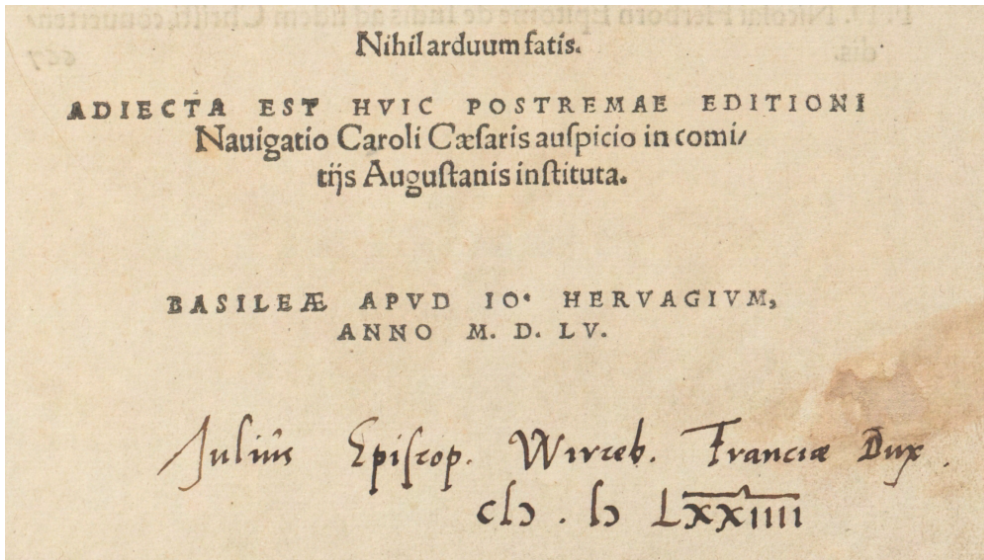 Nihil arduum fatis.
ADIECTA EST HVIC POSTREMAE EDITIONI
Nauigatio Caroli Cæſaris auſpicio in comi/
tijs Auguſtanis inſtituta.
BASILEÆ APVD IO. HERVAGIVM,
ANNO M. D. LV.
Julius Epiſcop. Wirceb. Franciæ Dux.
cIↄ . Iↄ LXXIIII